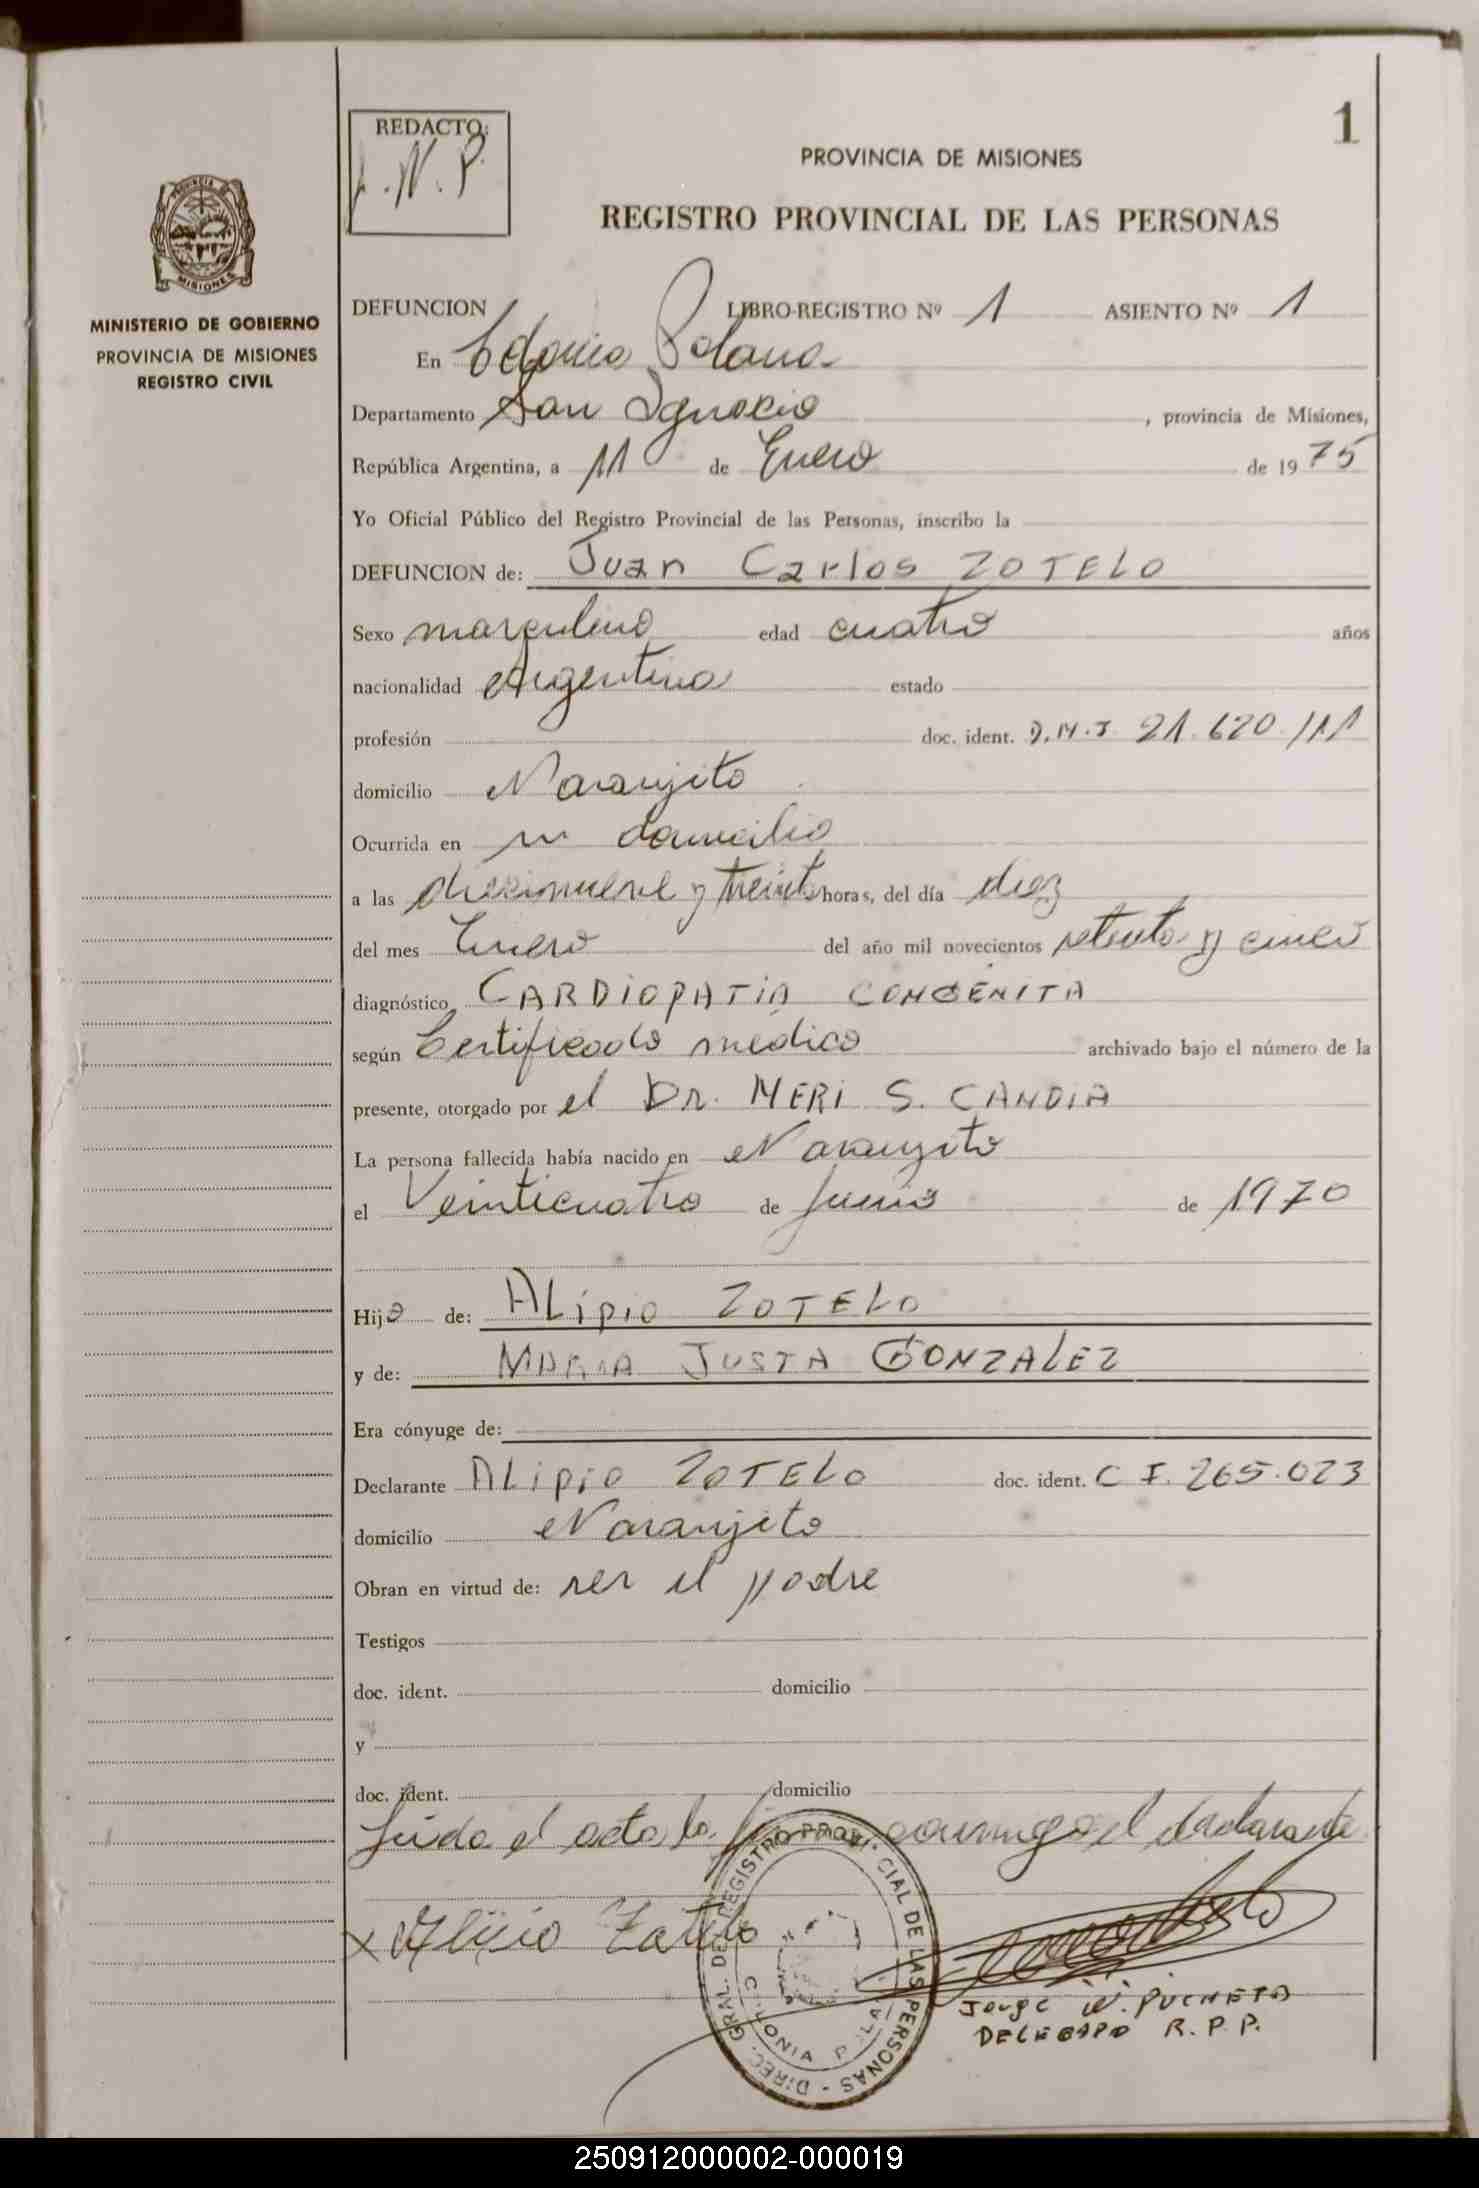 1
REDACTO:
J.N.P.
PROVINCIA DE MISIONES
REGISTRO PROVINCIAL DE LAS PERSONAS
MISIONES
MINISTERIO DE GOBIERNO
PROVINCIA DE MISIONES
REGISTRO CIVIL
DEFUNCION LIBRO-REGISTRO Nº 1 ASIENTO Nº 1
En Colonia Polana
Departamento San Ignacio , provincia de Misiones,
República Argentina, a 11 de Enero de 1975
Yo Oficial Público del Registro Provincial de las Personas, inscribo la
DEFUNCION de: Juan Carlos ZOTELO
Sexo masculino edad cuatro años
nacionalidad Argentina estado
profesión doc. ident. D.M.I. 21.620.111
domicilio Naranjito
Ocurrida en su domicilio
a las diecinueve y treinta horas, del día diez
del mes Enero del año mil novecientos setenta y cinco
diagnóstico CARDIOPATIA CONGENITA
según Certificado medico archivado bajo el número de la
presente, otorgado por el DR. MERI S. CANDIA
La persona fallecida había nacido en Naranjito
el Veinticuatro de Junio de 1970
Hijo de: ALipio ZOTELO
y de: MARIA JUSTA GONZALEZ
Era cónyuge de:
Declarante ALipio ZOTELO doc. ident. C I. 265.023
domicilio Naranjito
Obran en virtud de: ser el padre
Testigos
doc. ident. domicilio
y
doc. ident. domicilio
Leida el acta la conmigo el declarante
x Alipio Zotelo
DIREC. GRAL. DEL REGISTRO PROVINCIAL DE LAS PERSONAS -
COLONIA POLANA
Jorge N. PUCHETA
DELEGADO R.P.P.
250912000002-000019